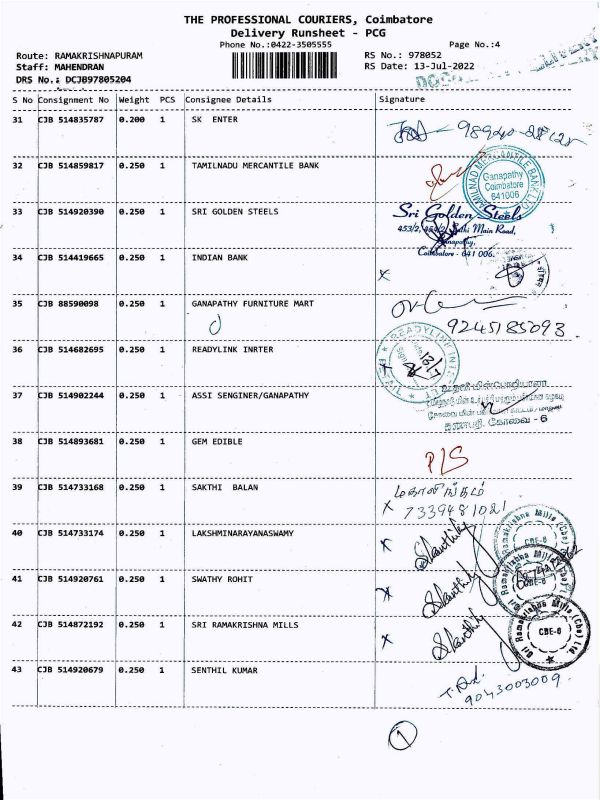 THE PROFESSIONAL COURIERS, Coimbatore
Delivery Runsheet - PCG
Phone No.:0422-3505555
Page No.:4
Route: RAMAKRISHNAPURAM
RS No.: 978052
Staff: MAHENDRAN
RS Date: 13-Jul-2022
DRS No.: DCJB97805204
S No Consignment No Weight PCS Consignee Details Signature
31 CJB 514835787 0.200 1 SK ENTER
32 CJB 514859817 0.250 1 TAMILNADU MERCANTILE BANK
TAMILNAD MERCANTILE BANK LTD
Ganapathy
Coimbatore
641006
33 CJB 514920390 0.250 1 SRI GOLDEN STEELS
Sri Golden Steels
Main Road,
Ganapathy,
Coimbatore - 641 006.
34 CJB 514419665 0.250 1 INDIAN BANK
X
35 CJB 88590098 0.250 1 GANAPATHY FURNITURE MART
9245185093
36 CJB 514682695 0.250 1 READYLINK INRTER
READYLINK
37 CJB 514902244 0.250 1 ASSI SENGINER/GANAPATHY
உதவி மின் பொறியாளர்
கணபதி, கோவை - 6
38 CJB 514893681 0.250 1 GEM EDIBLE
P/S
39 CJB 514733168 0.250 1 SAKTHI BALAN
மகாலிங்கம்
X 7339481021
40 CJB 514733174 0.250 1 LAKSHMINARAYANASWAMY
X Shanthily
41 CJB 514920761 0.250 1 SWATHY ROHIT
X Shanthily
42 CJB 514872192 0.250 1 SRI RAMAKRISHNA MILLS
X Shanthily
Sri Ramakrishna Mills (Cbe) Ltd.
CBE-6
43 CJB 514920679 0.250 1 SENTHIL KUMAR
9043003009
1